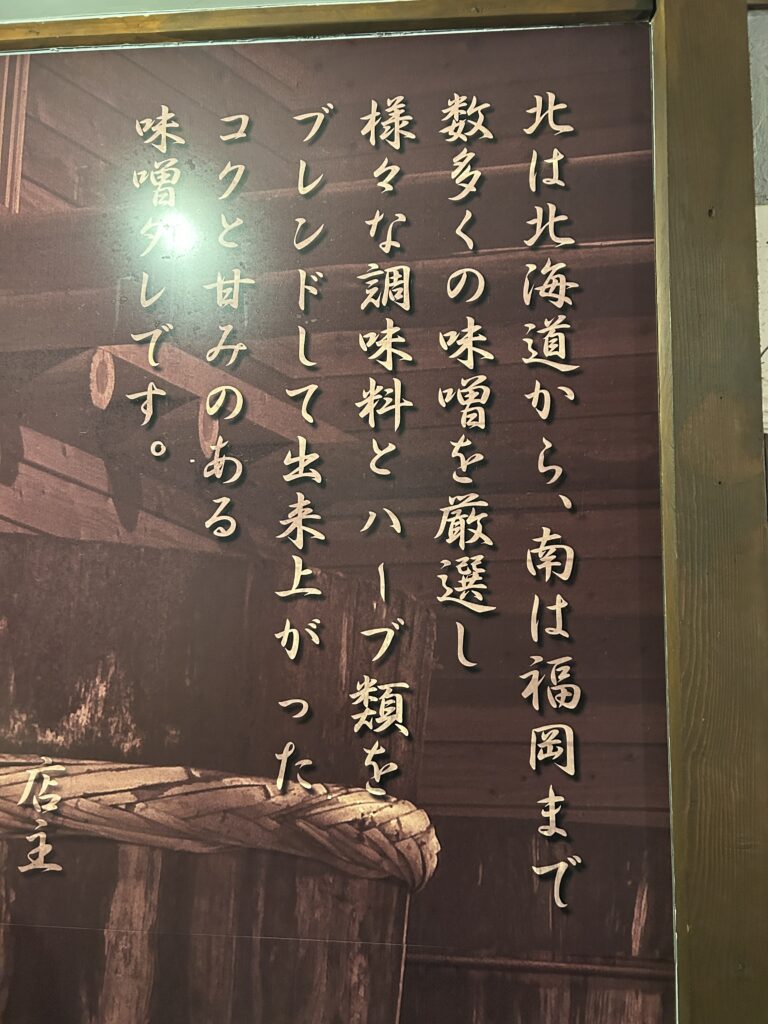 北は北海道から、南は福岡まで
数多くの味噌を厳選し
様々な調味料とハーブ類を
ブレンドして出来上がった
コクと甘みのある
味噌タレです。
店主